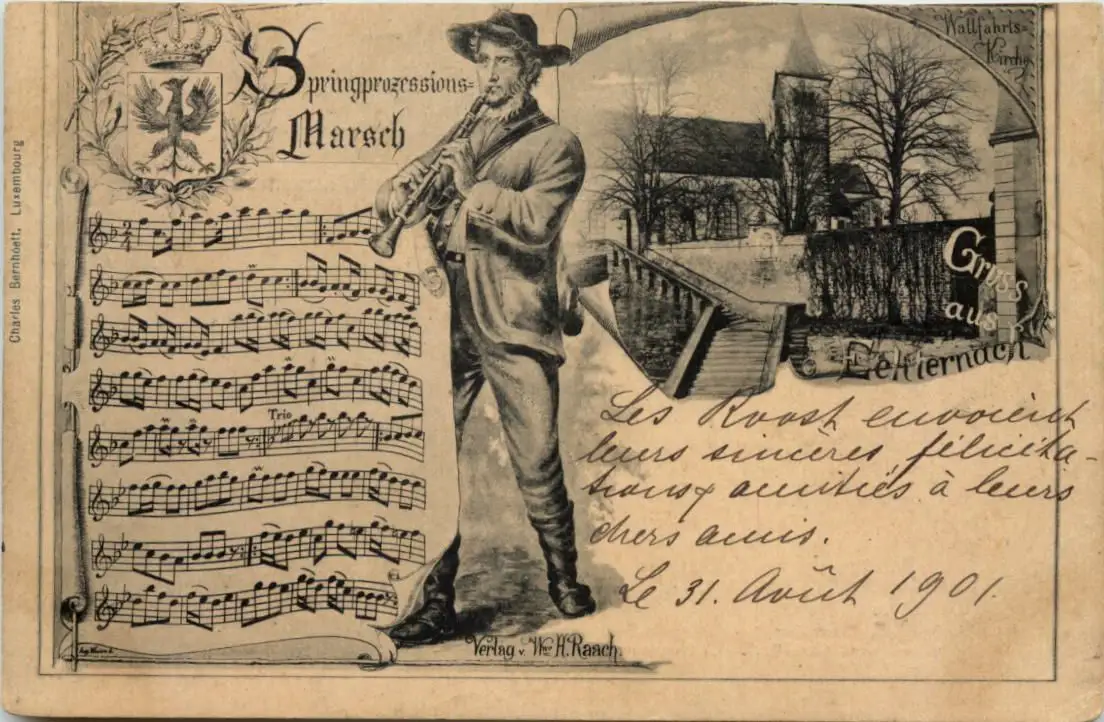 Charles Bernhoeft, Luxembourg
Springprozessions-
Marsch
Wallfahrts-
Kirche
Gruss
aus
Echternach
Trio
Les Roost envoient
leurs sincères félicita-
tions & amitiés à leurs
chers amis.
Le 31. Août 1901.
Verlag v. Wwe H. Raach.